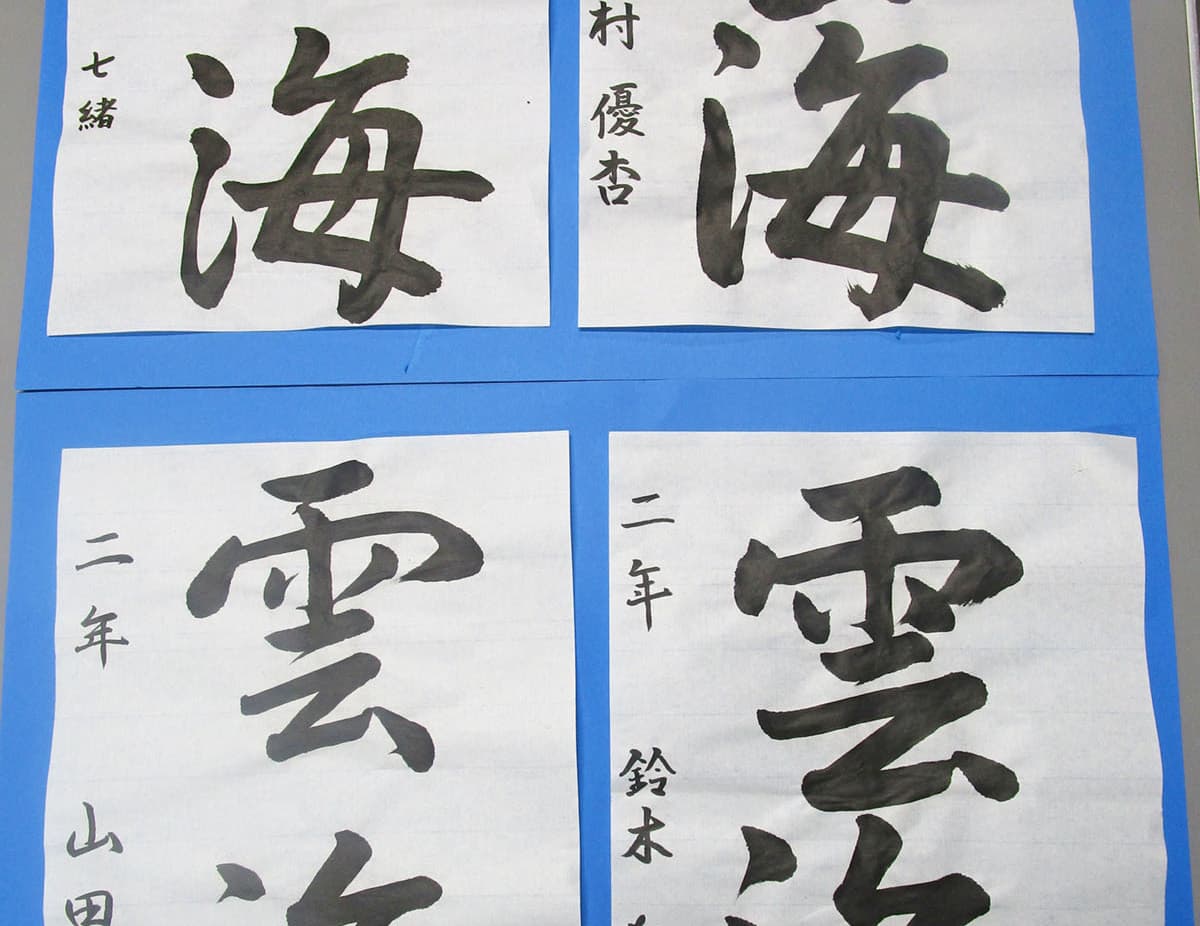 海
七緒
海
村 優杏
雲
二年 山田
雲
二年 鈴木